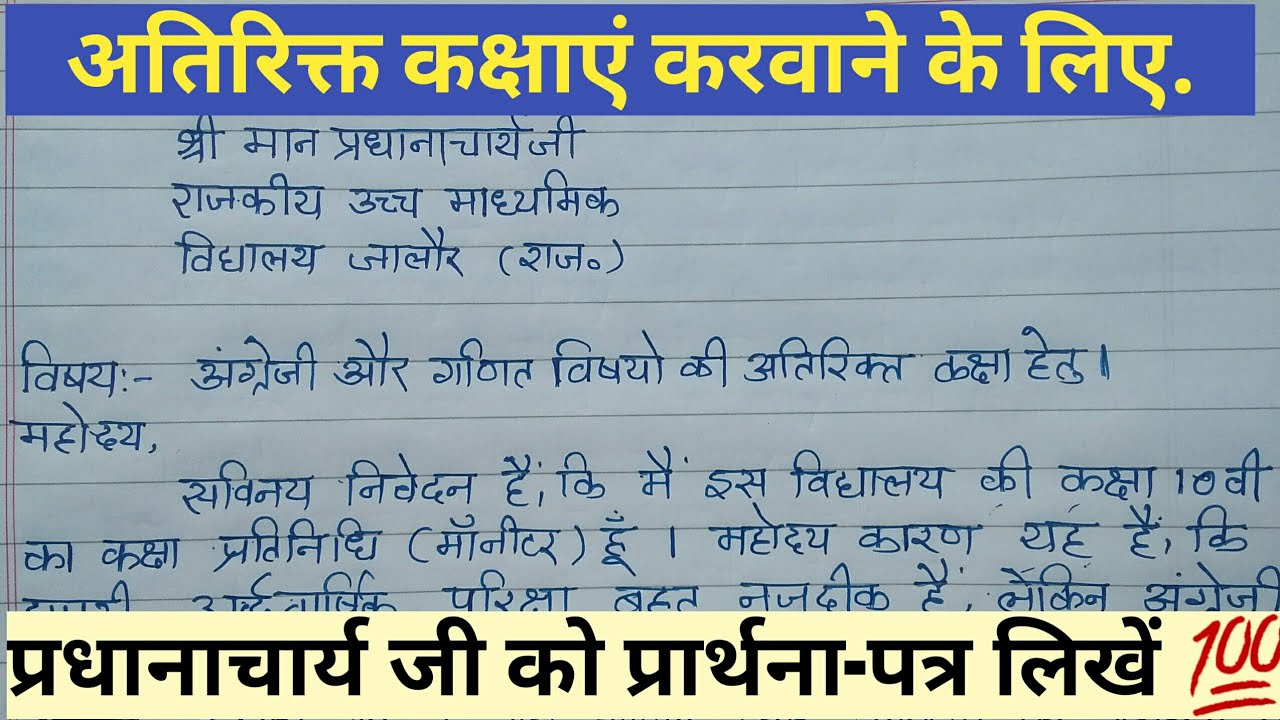 अतिरिक्त कक्षाएं करवाने के लिए.
श्री मान प्रधानाचार्य जी
राजकीय उच्च माध्यमिक
विद्यालय जालौर (राज॰)
विषय:- अंग्रेजी और गणित विषयो की अतिरिक्त कक्षा हेतु।
महोदय,
सविनय निवेदन हैं, कि मैं इस विद्यालय की कक्षा 10 वी
का कक्षा प्रतिनिधि (मॉनीटर) हूँ । महोदय कारण यह हैं, कि
अर्द्धवार्षिक परिक्षा बहुत नजदीक हैं, लेकिन अंग्रेजी
प्रधानाचार्य जी को प्रार्थना-पत्र लिखें 💯